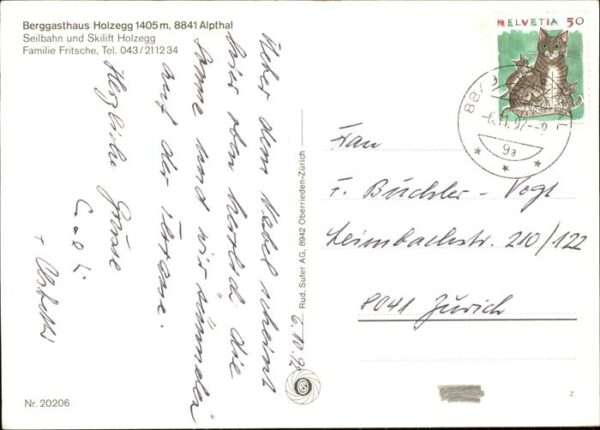 Berggasthaus Holzegg 1405 m, 8841 Alpthal
Seilbahn und Skilift Holzegg
Familie Fritsche, Tel. 043/21 12 34
Ueber dem Nebel scheint
hier oben herrlich die
Sonne und wir sünnela
auf der Terrasse.
Herzliche Grüsse
+
Rud. Suter AG, 8942 Oberrieden-Zürich
HELVETIA 50
9a
Frau
F. Büchler - Vogt
Leimbachstr. 210/122
8041 Zürich
Nr. 20206
2